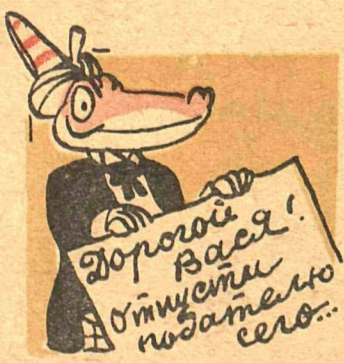 Дорогой
Вася!
Отпусти
подателю
сего...